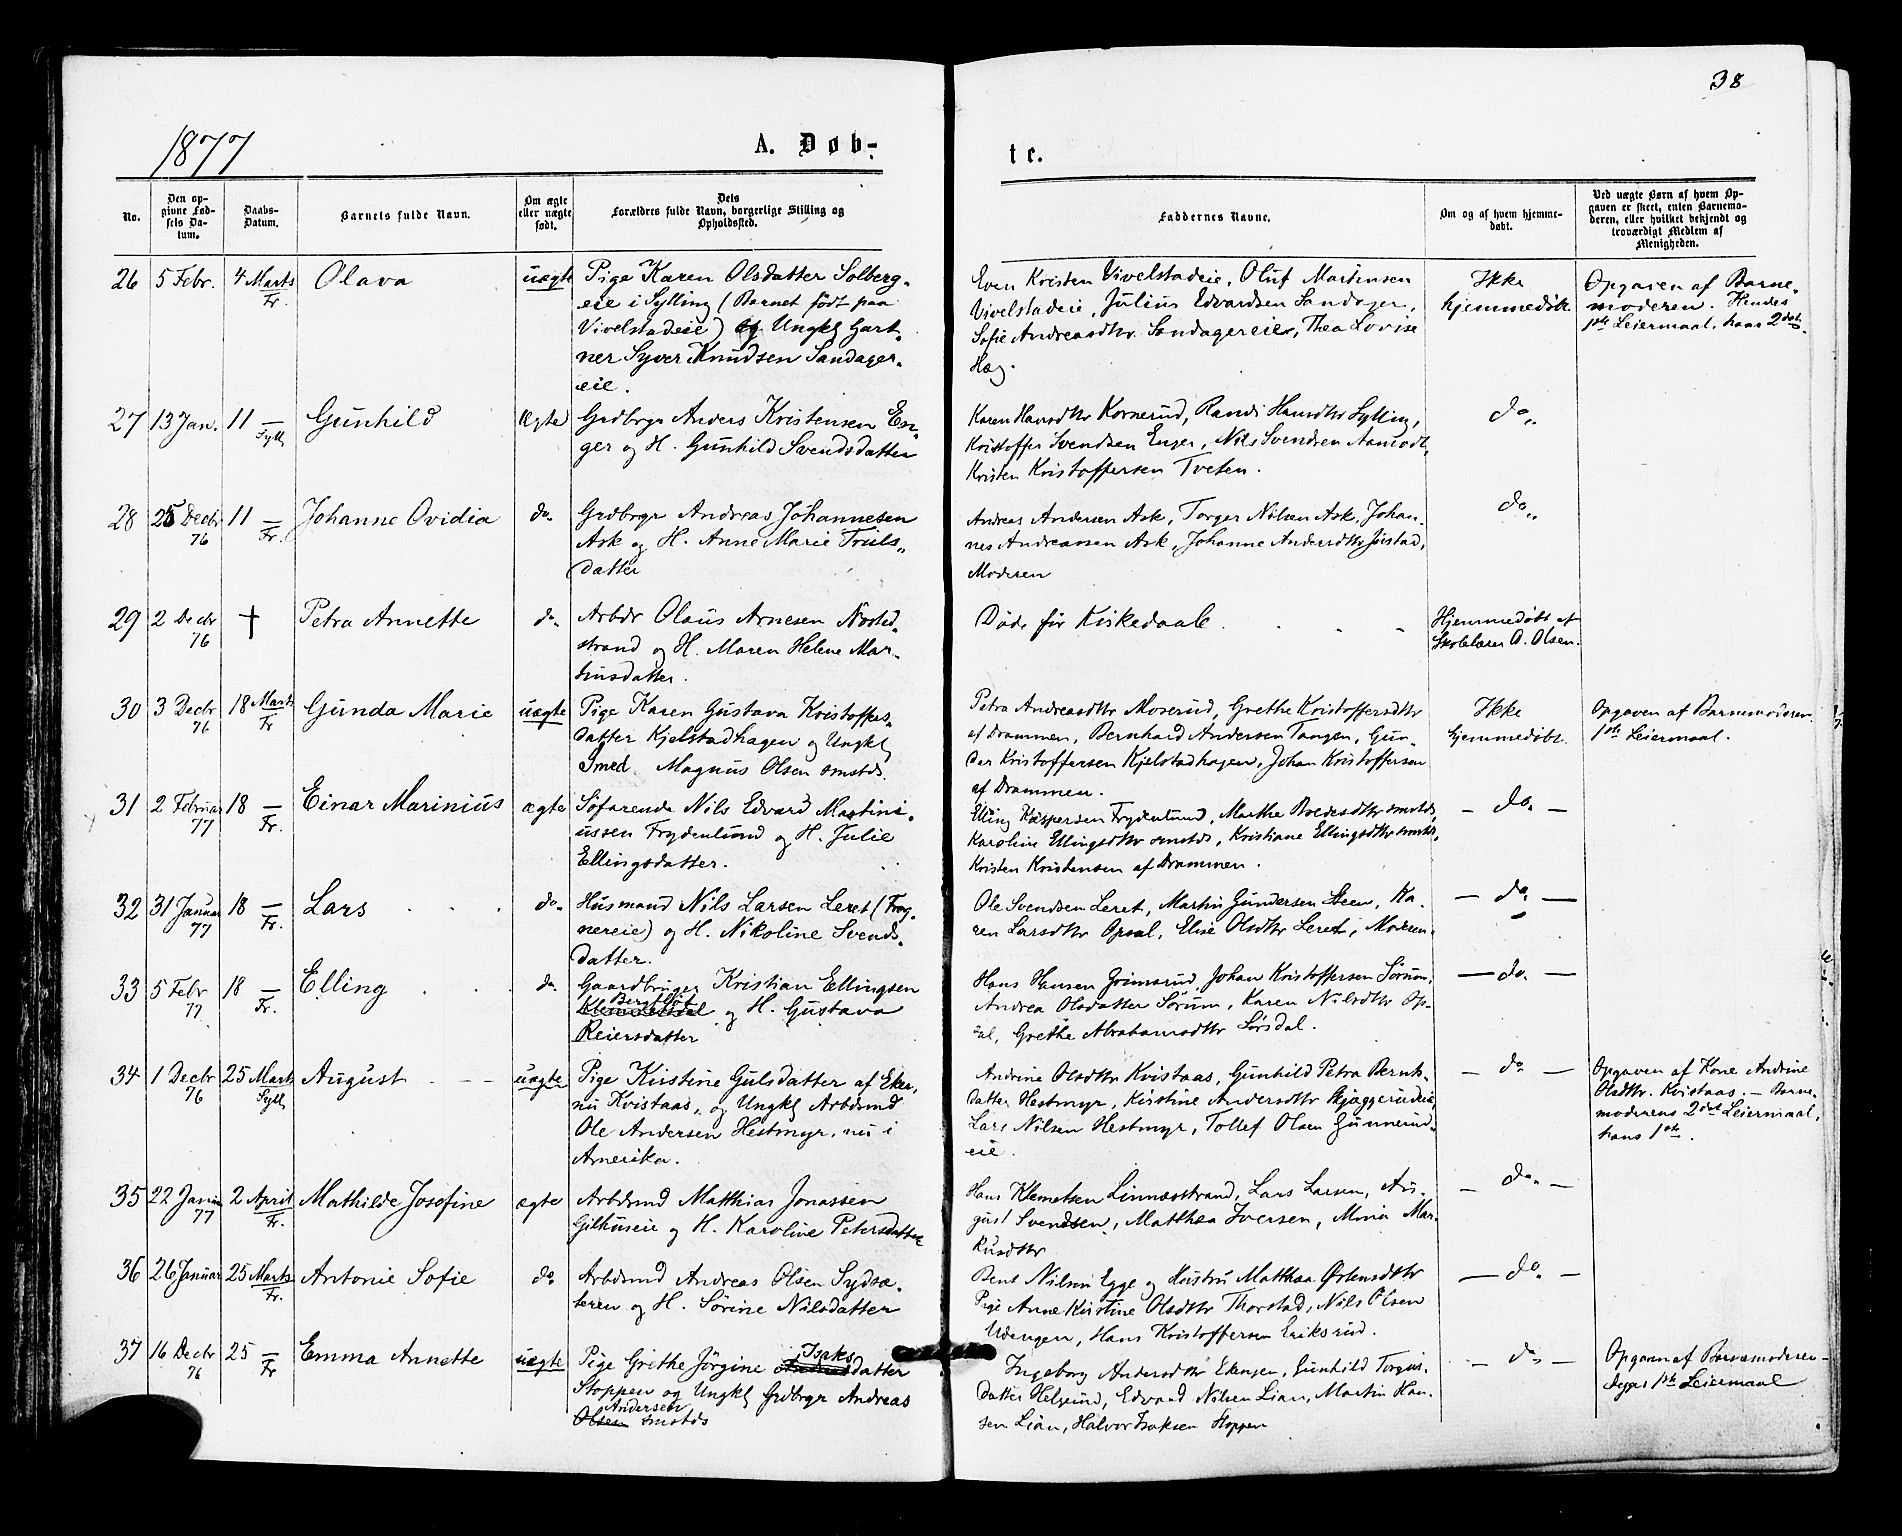 38
1877
A. Døb-
te.
No.
Den op-
givne Fød-
sels Da-
tum.
Daabs-
Datum.
Barnets fulde Navn.
Om ægte
eller uægte
født.
Dets
Forældres fulde Navn, borgerlige Stilling og
Opholdssted.
Faddernes Navne.
Om og af hvem hjemme-
døbt.
Ved uægte Børn af hvem Op-
gaven er skeet, enten Barnemo-
deren, eller hvilket bekjendt og
troværdigt Medlem af
Menigheden.
26 5 Febr. 4 Marts Fr. Olava uægte
Pige Karen Olsdatter Solberg-
eie i Sylling (Barnet født paa
Vivelstadeie) og Ungkl Gart-
ner Syver Knudsen Sandager-
eie.
Even Kristen Vivelstadeie, Oluf Martensen
Vivelstadeie, Julius Edvardsen Sandager,
Sofie Andreasdtr. Sandagereie, Thea Lovise
Hæg.
Ikke
hjemmedøbt.
Opgaven af Barne-
moderen. Hendes
1ste Leiermaal, hans 2det.
27 13 Jan. 11 — Syll Gunhild Ægte
Grdbrgr Anders Kristensen En-
ger og H. Gunhild Svendsdatter
Karen Hansdtr Kornerud, Randi Hansdtr Sylling,
Kristoffer Svendsen Enger, Nils Svendsen Aamodt,
Kristen Kristoffersen Tveten.
do.,
28 25 Decbr 76 11 — Fr. Johanne Ovidia do.
Grdbrgr Andreas Johannesen
Ask og H. Anne Marie Truls-
datter
Andreas Andersen Ask, Torger Nilsen Ask, Johan-
nes Andreassen Ask, Johanne Andersdtr Justad,
Moderen
do.,
29 2 Decbr 76 † Petra Annette do.
Arbdr Olaus Arnesen Nøsted-
strand og H. Maren Helene Mar-
tinsdatter.
Døde før Kirkedaab.
Hjemmedøbt af
Skolelærer O. Olsen.
30 3 Decbr 76 18 Marts Fr Gunda Marie uægte
Pige Karen Gustava Kristoffers-
datter Kjelstadhagen og Ungkl
Smed Magnus Olsen smstds.
Petra Andreasdtr Moserud, Grethe Kristoffersdtr
af Drammen, Bernhard Andersen Tangen, Gun-
der Kristoffersen Kjelstadhagen, Johan Kristoffersen
af Drammen.
Ikke
hjemmedøbt.
Opgaven af Barnemoderen
1ste Leiermaal.
31 2 Februar 77 18 — Fr. Einar Marinius ægte
Søfarende Nils Edvard Martini-
ussen Frydenlund og H. Julie
Ellingsdatter.
Elling Kaspersen Frydenlund, Marthe Bredesdtr smstds,
Karoline Ellingsdtr smstds, Kristiane Ellingsdtr smstds,
Kristen Kristensen af Drammen.
— do. —
32 31 Januar 77 18 — Fr. Lars do.
Husmand Nils Larsen Leret (Frog-
nereie) og H. Nikoline Svends-
datter.
Ole Svendsen Leret, Martin Gundersen Steen, Ka-
ren Larsdtr Opsal, Elise Olsdtr Leret, Moderen.
— do. —
33 5 Febr 77 18 — Fr. Elling do.
Gaardbruger Kristian Ellingsen
og H. Gustava
Reiersdatter
Hans Hansen Grimsrud, Johan Kristoffersen Sørum,
Andrea Olsdatter Sørum, Karen Nilsdtr Op-
sal, Grethe Abrahamsdtr Sørsdal.
— do. —
34 1 Decbr 76 25 Marts Syll August uægte
Pige Kirstine Gulsdatter af Eker,
nu Kvistaas, og Ungkl Arbdsmd
Ole Andersen Hestmyr, nu i
Amerika.
Andrine Olsdtr Kvistaas, Gunhild Petra Bernts-
datter Hestmyr, Kirstine Andersdtr Skjæggerudeie,
Lars Nilsen Hestmyr, Tollef Olsen Gunnerud-
eie.
— do —
Opgaven af Kone Andrine
Olsdtr. Kvistaas. — Barne-
moderens 2det Leiermaal,
hans 1ste.
35 22 Januar 77 2 April Fr. Mathilde Josefine ægte
Arbdsmd Matthias Jonassen
Gilhuseie og H. Karoline Petersdatter
Hans Klemetsen Linnæsstrand, Lars Larsen, Au-
gust Svendsen, Matthea Iversen, Mina Mar-
kusdtr
— do. —
36 26 Januar 25 Marts Fr. Antonie Sofie do.
Arbdsmd Andreas Olsen Sydsæ-
teren og H. Sørine Nilsdatter
Bent Nilsen Egge og Hustru Matthea Østensdtr
Pige Anne Kirstine Olsdtr Thorstad, Nils Olsen
Udengen, Hans Kristoffersen Eriksrud.
— do. —
37 16 Decbr 76 25 — Fr Emma Annette uægte
Pige Grethe Jørgine Isaksdatter
Stoppen og Ungkl Grdbrgr Andreas
Andersen
Olsen smstds
Ingeborg Andersdtr Ekengen, Gunhild Torgus-
datter Helgerud, Edvard Nilsen Lian, Martin Han-
sen Lian, Halvor Isaksen Stoppen
— do —
Opgaven af Barnemoderen —
Begges 1ste Leiermaal